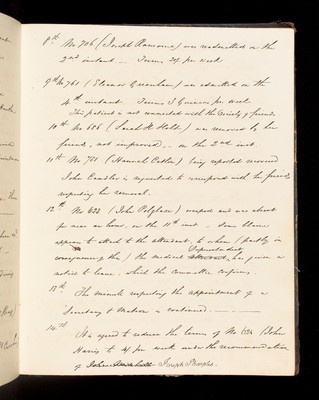 8th No 706 (Joseph Ransome) was readmitted on the
2nd instant — Terms 20/ per week
9th No 761 (Eleanor Greenham) was admitted on the
4th instant Terms 3 Guineas per week
This patient is not connected with the Society of friends
10th No 686 (Sarah H Holt) was removed by her
friends, not improved, — on the 2nd inst
11th No 751 (Hannah Catlin) being reported recovered
John Candler is requested to correspond with her friends
respecting her removal.
12th No 622 (John Polglase) escaped and was absent
for near an hour, on the 11th inst — some blame
appears to attach to the attendant, to whom (partly in
consequence thereof) the medical Superintendent has given a
notice to leave, which the committee confirms.
13th The minute respecting the appointment of a
Secretary & Matron is continued. —
14th It is agreed to reduce the terms of No 624 (John
Haris) to 4/ per week under the recommendation
of Joseph Sharples.